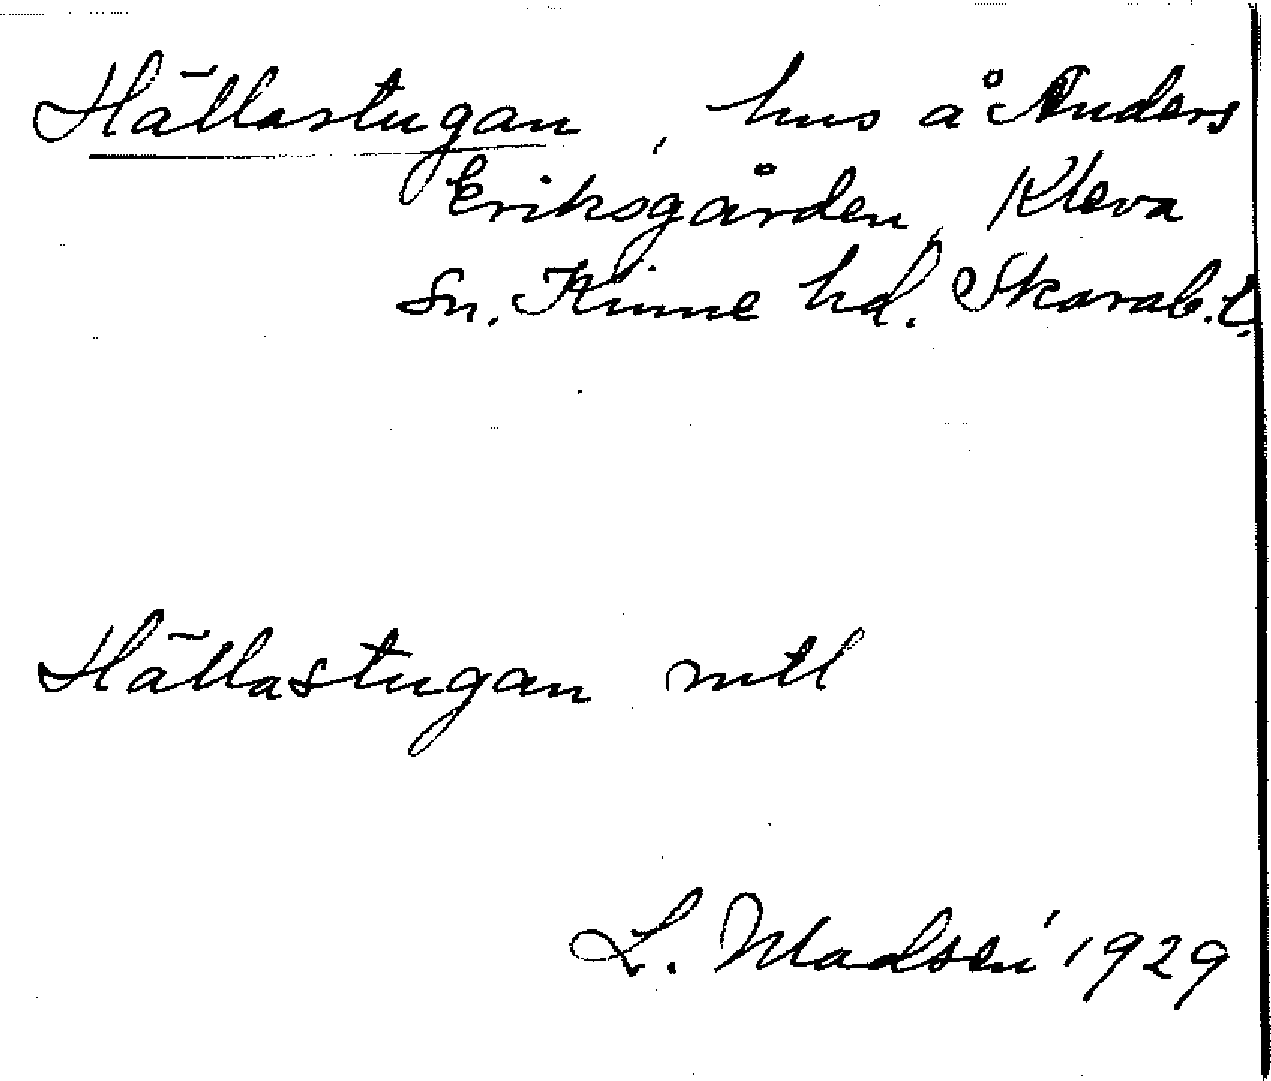 Hällastugan, hus å Anders
Eriksgården, Kleva
sn. Kinne hd. Skarab. l.
Hällastugan mtl
L. Madsén 1929